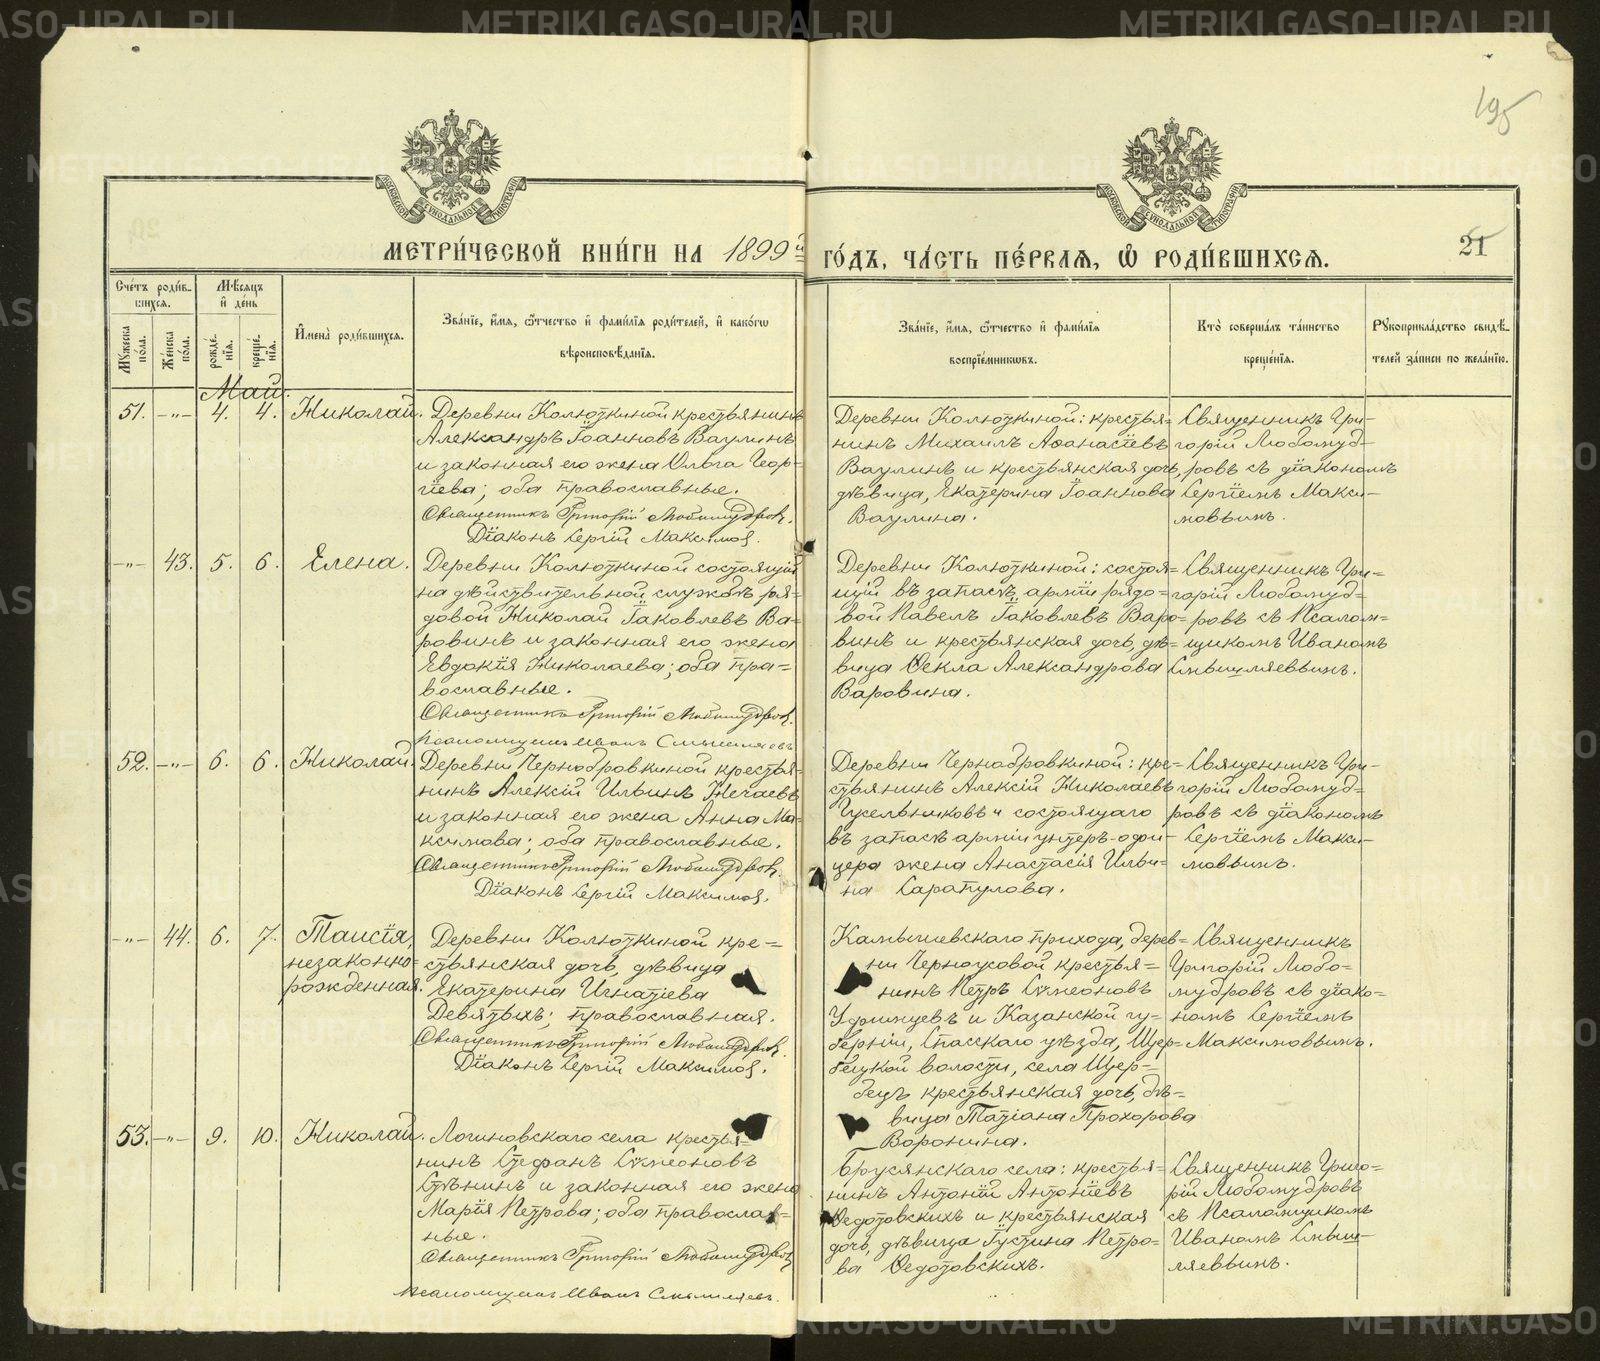 METRIKI.GASO-URAL.RU
195
МОСКОВСКОЙ СѴНОДАЛЬНОЙ ТИПОГРАФІИ
МОСКОВСКОЙ СѴНОДАЛЬНОЙ ТИПОГРАФІИ
МЕТРИ́ЧЕСКОЙ КНИ́ГИ НА 1899й ГО́ДЪ, ЧА́СТЬ ПЕ́РВАѦ, Ѽ РОДИ́ВШИХСѦ.
21
Сче́тъ роди́в-
шихся.
Мѣ́сяцъ
и҆ де́нь
Мꙋ́жеска по́ла.
Же́нска по́ла.
рожде́-
нїя.
креще́-
нїя.
И҆мена̀ роди́вшихся.
Зва́нїе, и҆́мя, ѻ҆́тчество и҆ фами́лїя роди́телей, и҆ како́гѡ
вѣроисповѣ́данїя.
Зва́нїе, и҆́мя, ѻ҆́тчество и҆ фами́лїя
воспрїе́мниковъ.
Кто̀ соверша́лъ та́инство
креще́нїя.
Рꙋкоприкла́дство свидѣ́-
телей за́писи по жела́нїю.
Май.
51. -"- 4. 4. Николай.
Деревни Колюткиной крестьянинъ
Александръ Іоанновъ Ваулинъ
и законная его жена Ольга Геор-
гіева; оба православные.
Священникъ Григорій Любомудровъ.
Діаконъ Сергій Максимов.
Деревни Колюткиной: крестья-
нинъ Михаилъ Аѳанасіевъ
Ваулинъ и крестьянская дочь,
дѣвица, Екатерина Іоаннова
Ваулина.
Священникъ Гри-
горій Любомуд-
ровъ съ діакономъ
Сергіемъ Макси-
мовымъ.
-"- 43. 5. 6. Елена.
Деревни Колюткиной состоящій
на дѣйствительной службѣ ря-
довой Николай Іаковлевъ Ва-
ровинъ и законная его жена
Евдокія Николаева; оба пра-
вославные.
Священникъ Григорій Любомудровъ.
Псаломщикъ Иванъ Смышляевъ
Деревни Колюткиной: состоя-
щій въ запасѣ арміи рядо-
вой Павелъ Іаковлевъ Варо-
винъ и крестьянская дочь, дѣ-
вица Ѳекла Александрова
Варовина.
Священникъ Гри-
горій Любомуд-
ровъ съ Псалом-
щикомъ Иваномъ
Смышляевымъ.
52. -"- 6. 6. Николай.
Деревни Чернобровкиной крестья-
нинъ Алексій Ильинъ Нечаевъ
и законная его жена Анна Ма-
ксимова; оба православные.
Священникъ Григорій Любомудровъ.
Діаконъ Сергій Максимов.
Деревни Чернобровкиной: кре-
стьянинъ Алексій Николаевъ
Гусельниковъ и состоящаго
въ запасѣ арміи унтеръ-офи-
цера жена Анастасія Ильи-
на Сарапулова.
Священникъ Гри-
горій Любомуд-
ровъ съ діакономъ
Сергіемъ Макси-
мовымъ.
-"- 44. 6. 7. Таисія,
незаконно-
рожденная.
Деревни Колюткиной кре-
стьянская дочь, дѣвица
Екатерина Игнатіева
Девятыхъ; православная.
Священникъ Григорій Любомудровъ.
Діаконъ Сергій Максимов.
Камышевскаго прихода, дерев-
ни Черноусовой крестья-
нинъ Петръ Сѵмеоновъ
Удринцевъ и Казанской гу-
берніи, Спасскаго уѣзда, Щер-
бецкой волости, села Щер-
бецъ крестьянская дочь, дѣ-
вица Татіана Прохорова
Воронина.
Священникъ
Григорій Любо-
мудровъ съ діако-
номъ Сергіемъ
Максимовымъ.
53. -"- 9. 10. Николай.
Логиновскаго села крестья-
нинъ Стефанъ Сѵмеоновъ
Стѣнинъ и законная его жена
Марія Петрова; оба православ-
ные.
Священникъ Григорій Любомудровъ
Псаломщикъ Иванъ Смышляевъ.
Брусянскаго села: крестья-
нинъ Антоній Антоніевъ
Ѳедотовскихъ и крестьянская
дочь, дѣвица Іустина Петро-
ва Ѳедотовскихъ.
Священникъ Григо-
рій Любомудровъ
съ Псаломщикомъ
Иваномъ Смыш-
ляевымъ.